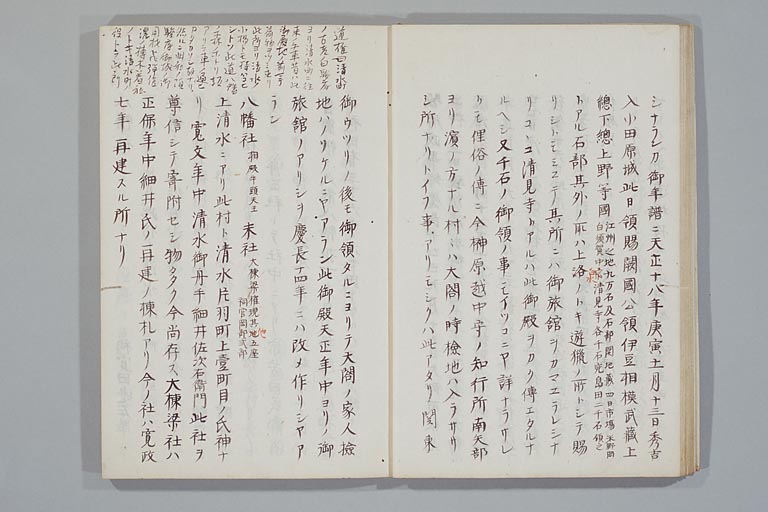 シナランカ御年譜ニ天正十八年庚寅七月十三日秀吉
入小田原城此日領賜關國公領伊豆相模武藏上
總下總上野等國江州之地九万石及石部関地蔵四日市場
白須賀中泉清見寺各千石島田二千石領之
トアル石部其外ノ所ハ上洛ノトキ遊獵ノ所トシテ賜
リシトミエテ其所ニハ御旅舘ヲカマエラレシナ
リコヽニ清見寺トアルハ此御殿ヲカク傳エタルナ
ルヘシ又千石ノ御領ノ事モイツコニヤ詳ナラサレ
トモ俚俗ノ傳ニ今榊原越中守ノ知行所南矢部
ヨリ濱ノ方ナル村ニハ大閤ノ時檢地ハ入ラサリ
シ所ナリトイフ事アリモシクハ此アタリ関東
御ウツリノ後モ御領タルニヨリテ大閤ノ家人檢
地ハノソケルニヤアラン此御殿天正年中ヨリノ御
旅館ノアリシヲ慶長十四年ニハ改メ作リシヤア
ラン
八幡社 相殿牛頭天王 末社 大棟梁權現其他五座
祠官岡部式部
上清水ニアリ此村ト清水片羽町上壹町目ノ氏神ナ
リ寛文年中清水御舟手細井佐次右衛門此社ヲ
尊信シテ寄附セシ物多ク今尚存ス大棟梁社ハ
正保年中細井氏ノ再建ノ棟札アリ今ノ社ハ寛政
七年再建スル所ナリ